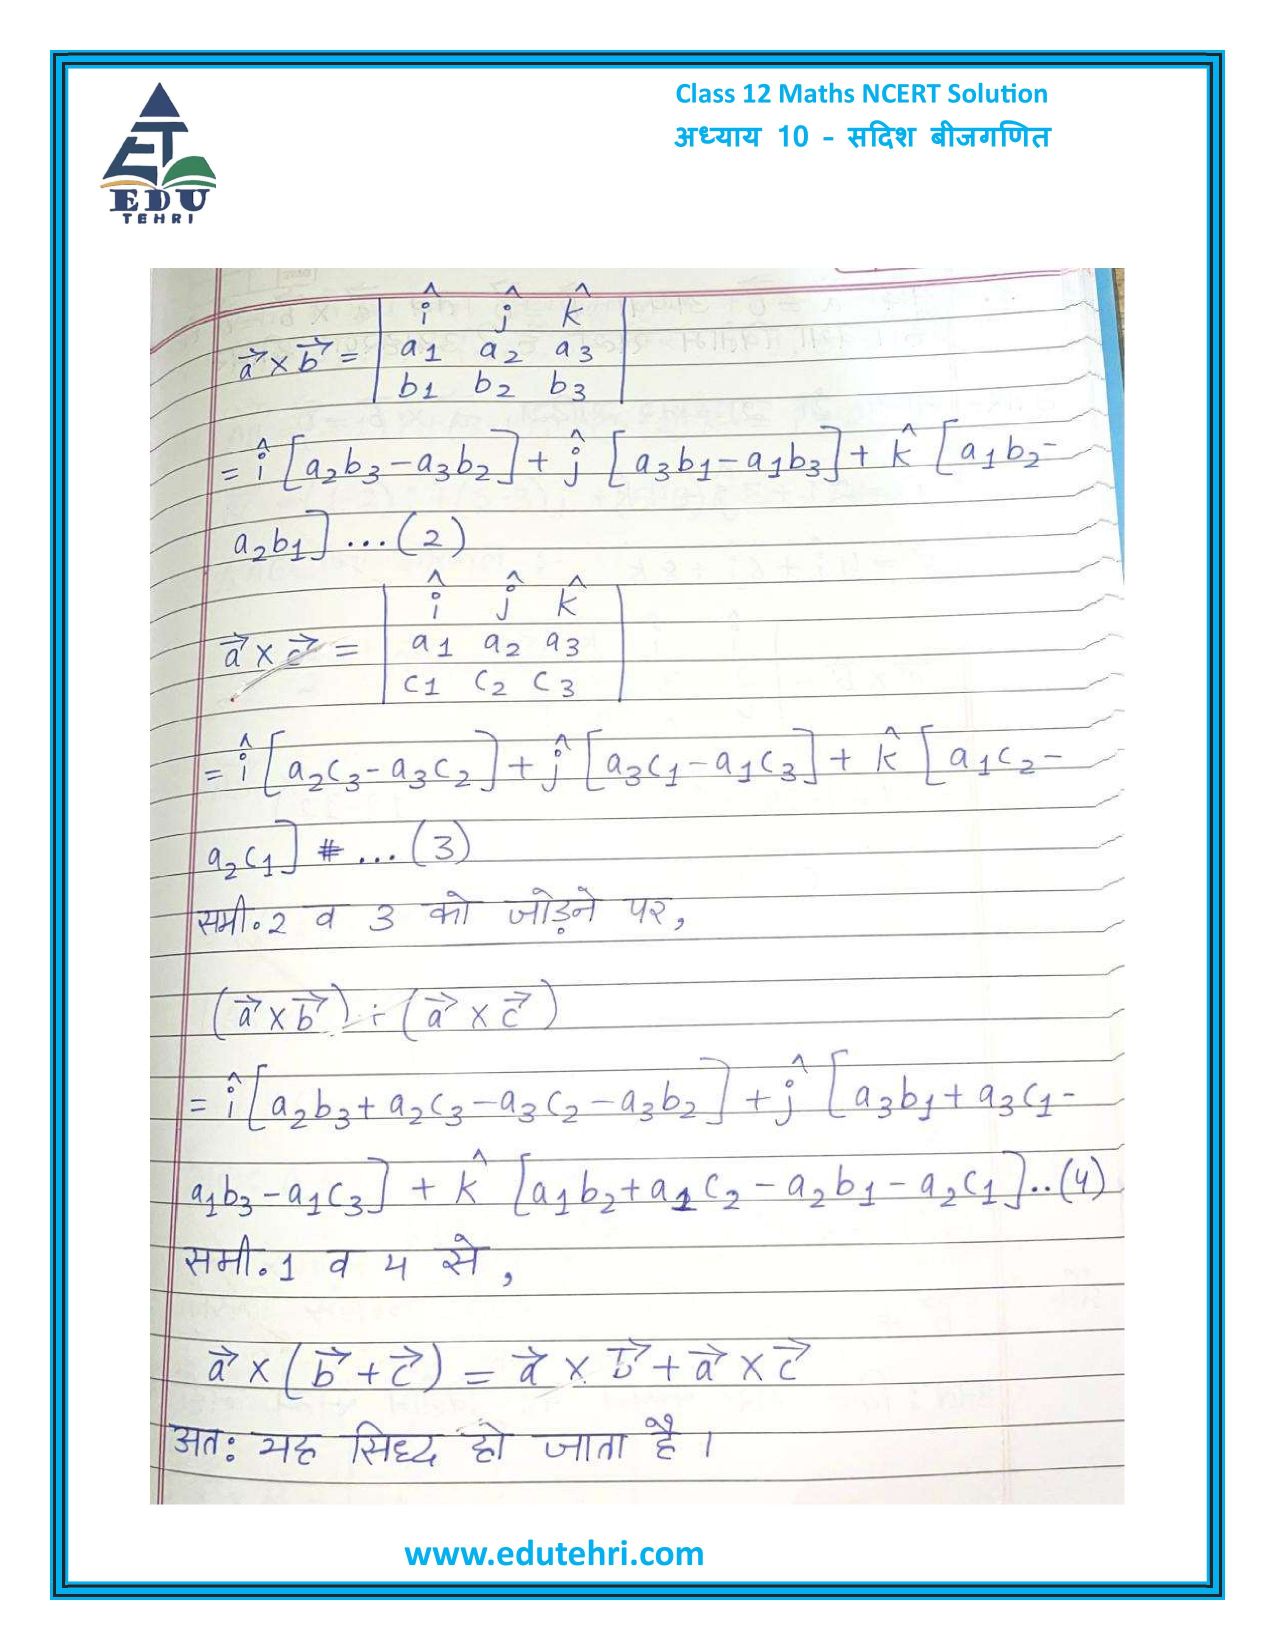 Class 12 Maths NCERT Solution
अध्याय 10 - सदिश बीजगणित
EDU
TEHRI
î ĵ k̂
a⃗ × b⃗ = | a1 a2 a3 |
b1 b2 b3
= î [a2b3 - a3b2] + ĵ [a3b1 - a1b3] + k̂ [a1b2 -
a2b1] ... (2)
î ĵ k̂
a⃗ × c⃗ = | a1 a2 a3 |
c1 c2 c3
= î [a2c3 - a3c2] + ĵ [a3c1 - a1c3] + k̂ [a1c2 -
a2c1] ... (3)
समी. 2 व 3 को जोड़ने पर,
(a⃗ × b⃗) + (a⃗ × c⃗)
= î [a2b3 + a2c3 - a3c2 - a3b2] + ĵ [a3b1 + a3c1 -
a1b3 - a1c3] + k̂ [a1b2 + a1c2 - a2b1 - a2c1] .. (4)
समी. 1 व 4 से,
a⃗ × (b⃗ + c⃗) = a⃗ × b⃗ + a⃗ × c⃗
अतः यह सिध्द हो जाता है।
www.edutehri.com